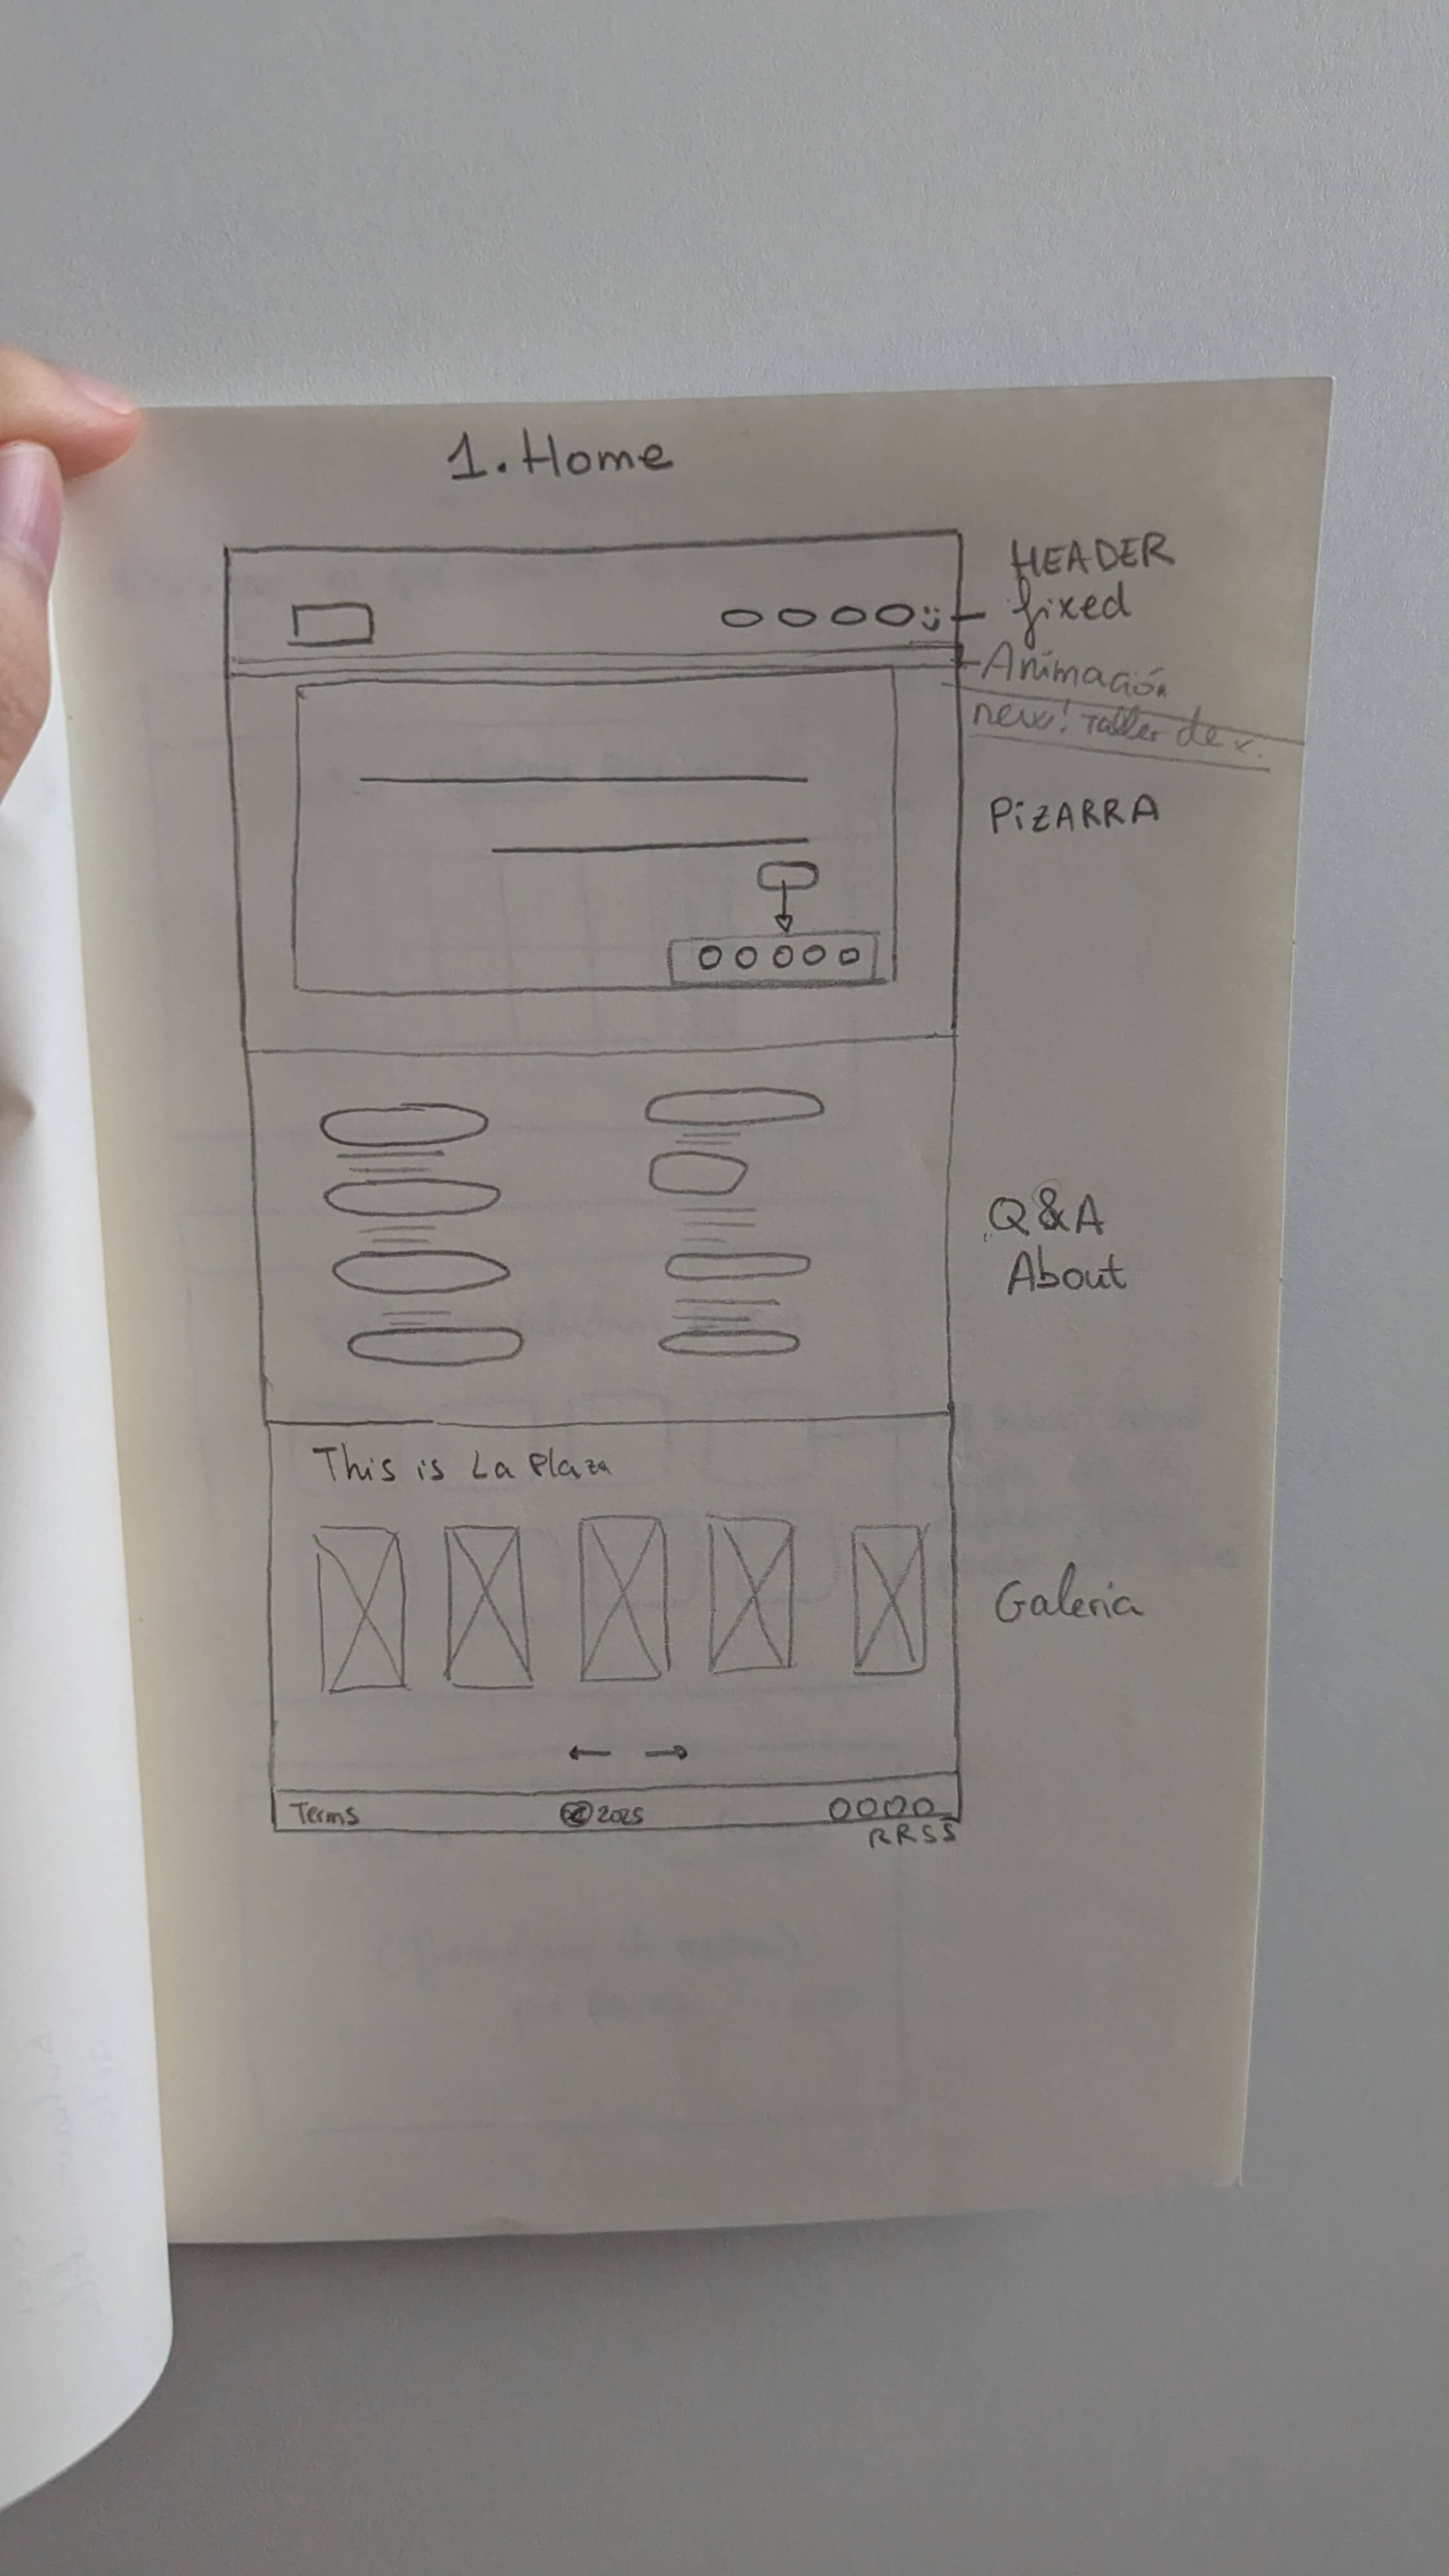 1. Home
HEADER
fixed
Animación
new! Taller de x.
PiZARRA
Q&A
About
This is La Plaza
Galeria
Terms
© 2025
RRSS